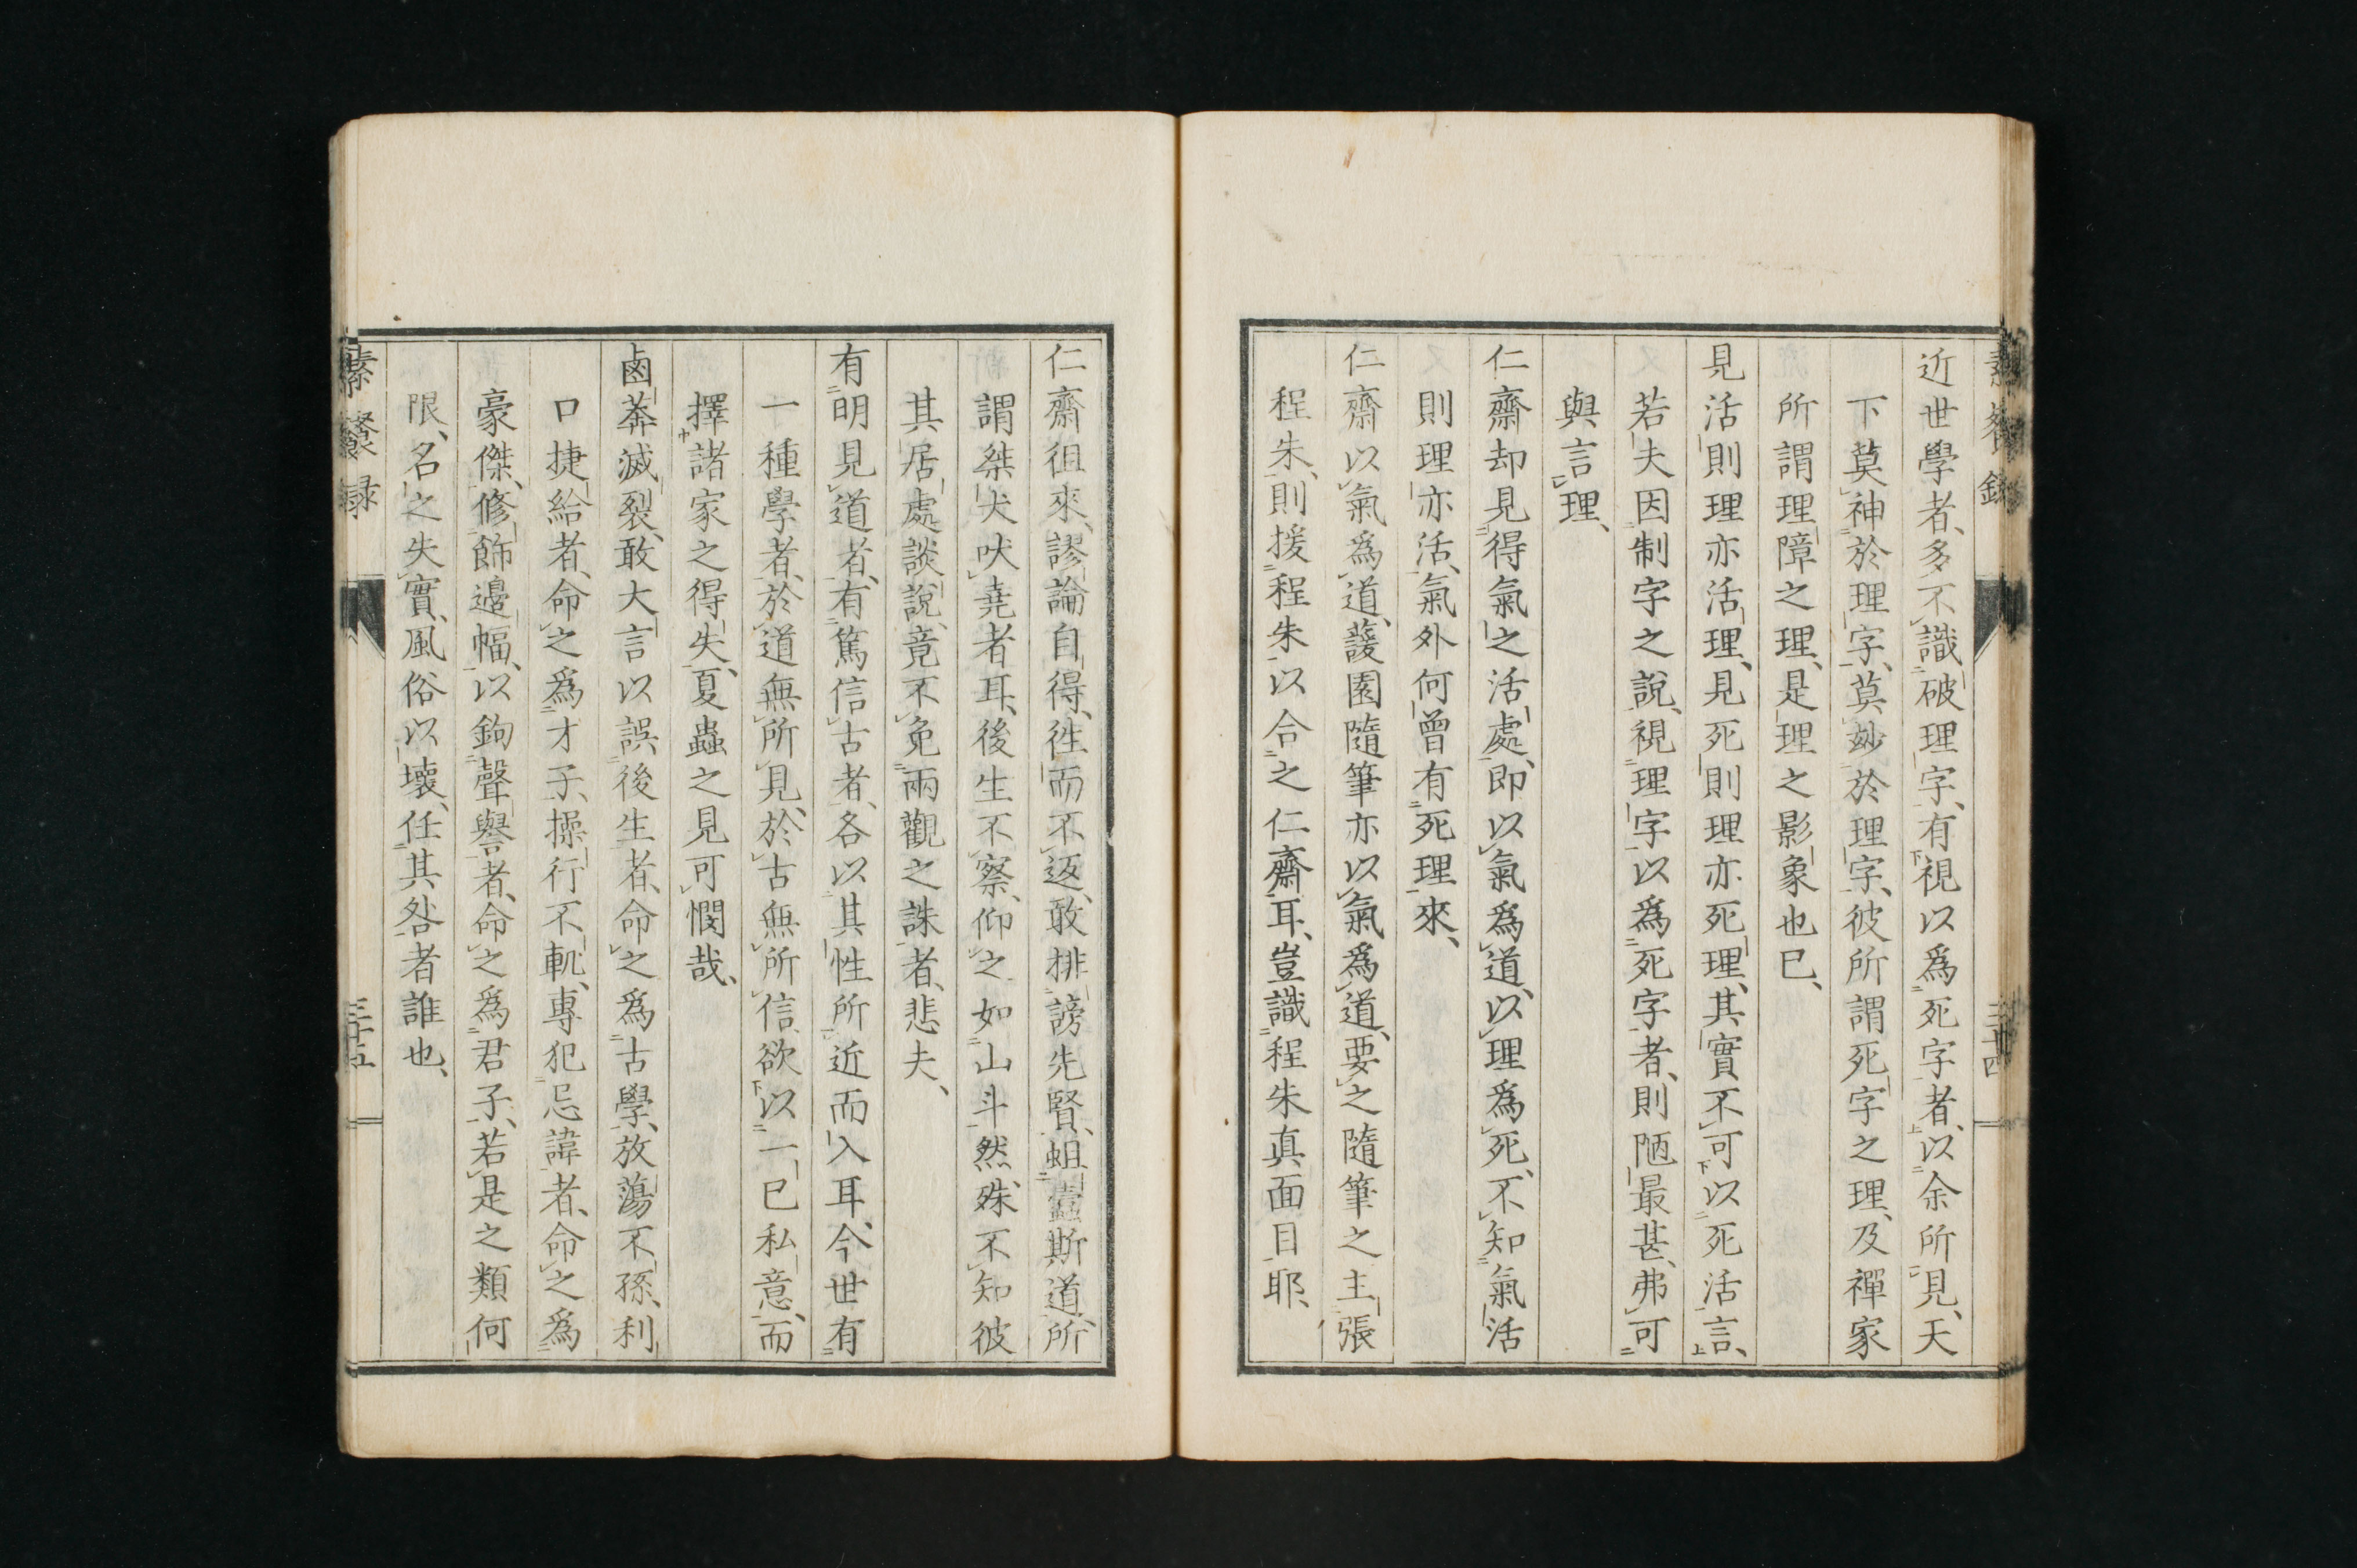 素餐録
三十四
近世學者、多不識破理字、有視以爲死字者、以余所見、天
下莫神於理字、莫妙於理字、彼所謂死字之理、及禪家
所謂理障之理、是理之影象也已、
見活則理亦活理、見死則理亦死理、其實不可以死活言、
若夫因制字之說、視理字以爲死字者、則陋最甚、弗可
與言理、
仁齋却見得氣之活處、即以氣爲道、以理爲死、不知氣活
則理亦活、氣外何曾有死理來、
仁齋以氣爲道、蘐園隨筆亦以氣爲道、要之隨筆之主張
程朱、則援程朱以合之仁齋耳、豈識程朱真面目耶、
仁齋徂來、謬論自得、往而不返、敢排謗先賢、蛆蠹斯道、所
謂桀犬吠堯者耳、後生不察、仰之如山斗然、殊不知彼
其居處談說、竟不免兩觀之誅者、悲夫、
有明見道者、有篤信古者、各以其性所近而入耳、今世有
一種學者、於道無所見、於古無所信、欲以一已私意、而
擇諸家之得失、夏蟲之見可憫哉、
鹵莽滅裂、敢大言以誤後生者、命之爲古學、放蕩不孫、利
口捷給者、命之爲才子、操行不軌、專犯忌諱者、命之爲
豪傑、修飾邊幅、以鉤聲譽者、命之爲君子、若是之類何
限、名之失實、風俗以壞、任其咎者誰也、
素餐録
三十五